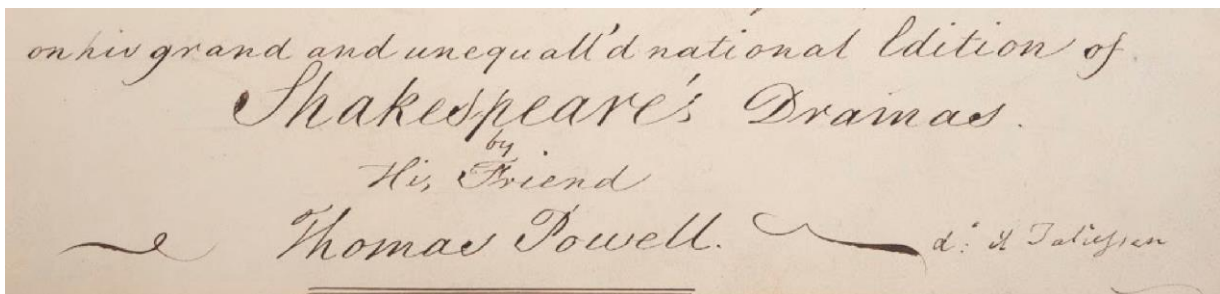 on his grand and unequall'd national Edition of
Shakespeare's Dramas.
by
His Friend
Thomas Powell.